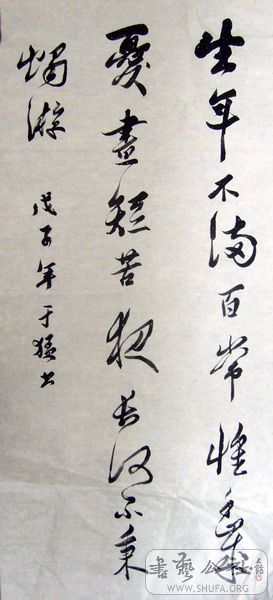 生年不滿百常懷千歲
憂晝短苦夜長何不秉
燭游
戊子年于猛书
書藝公社
WWW.SHUFA.ORG